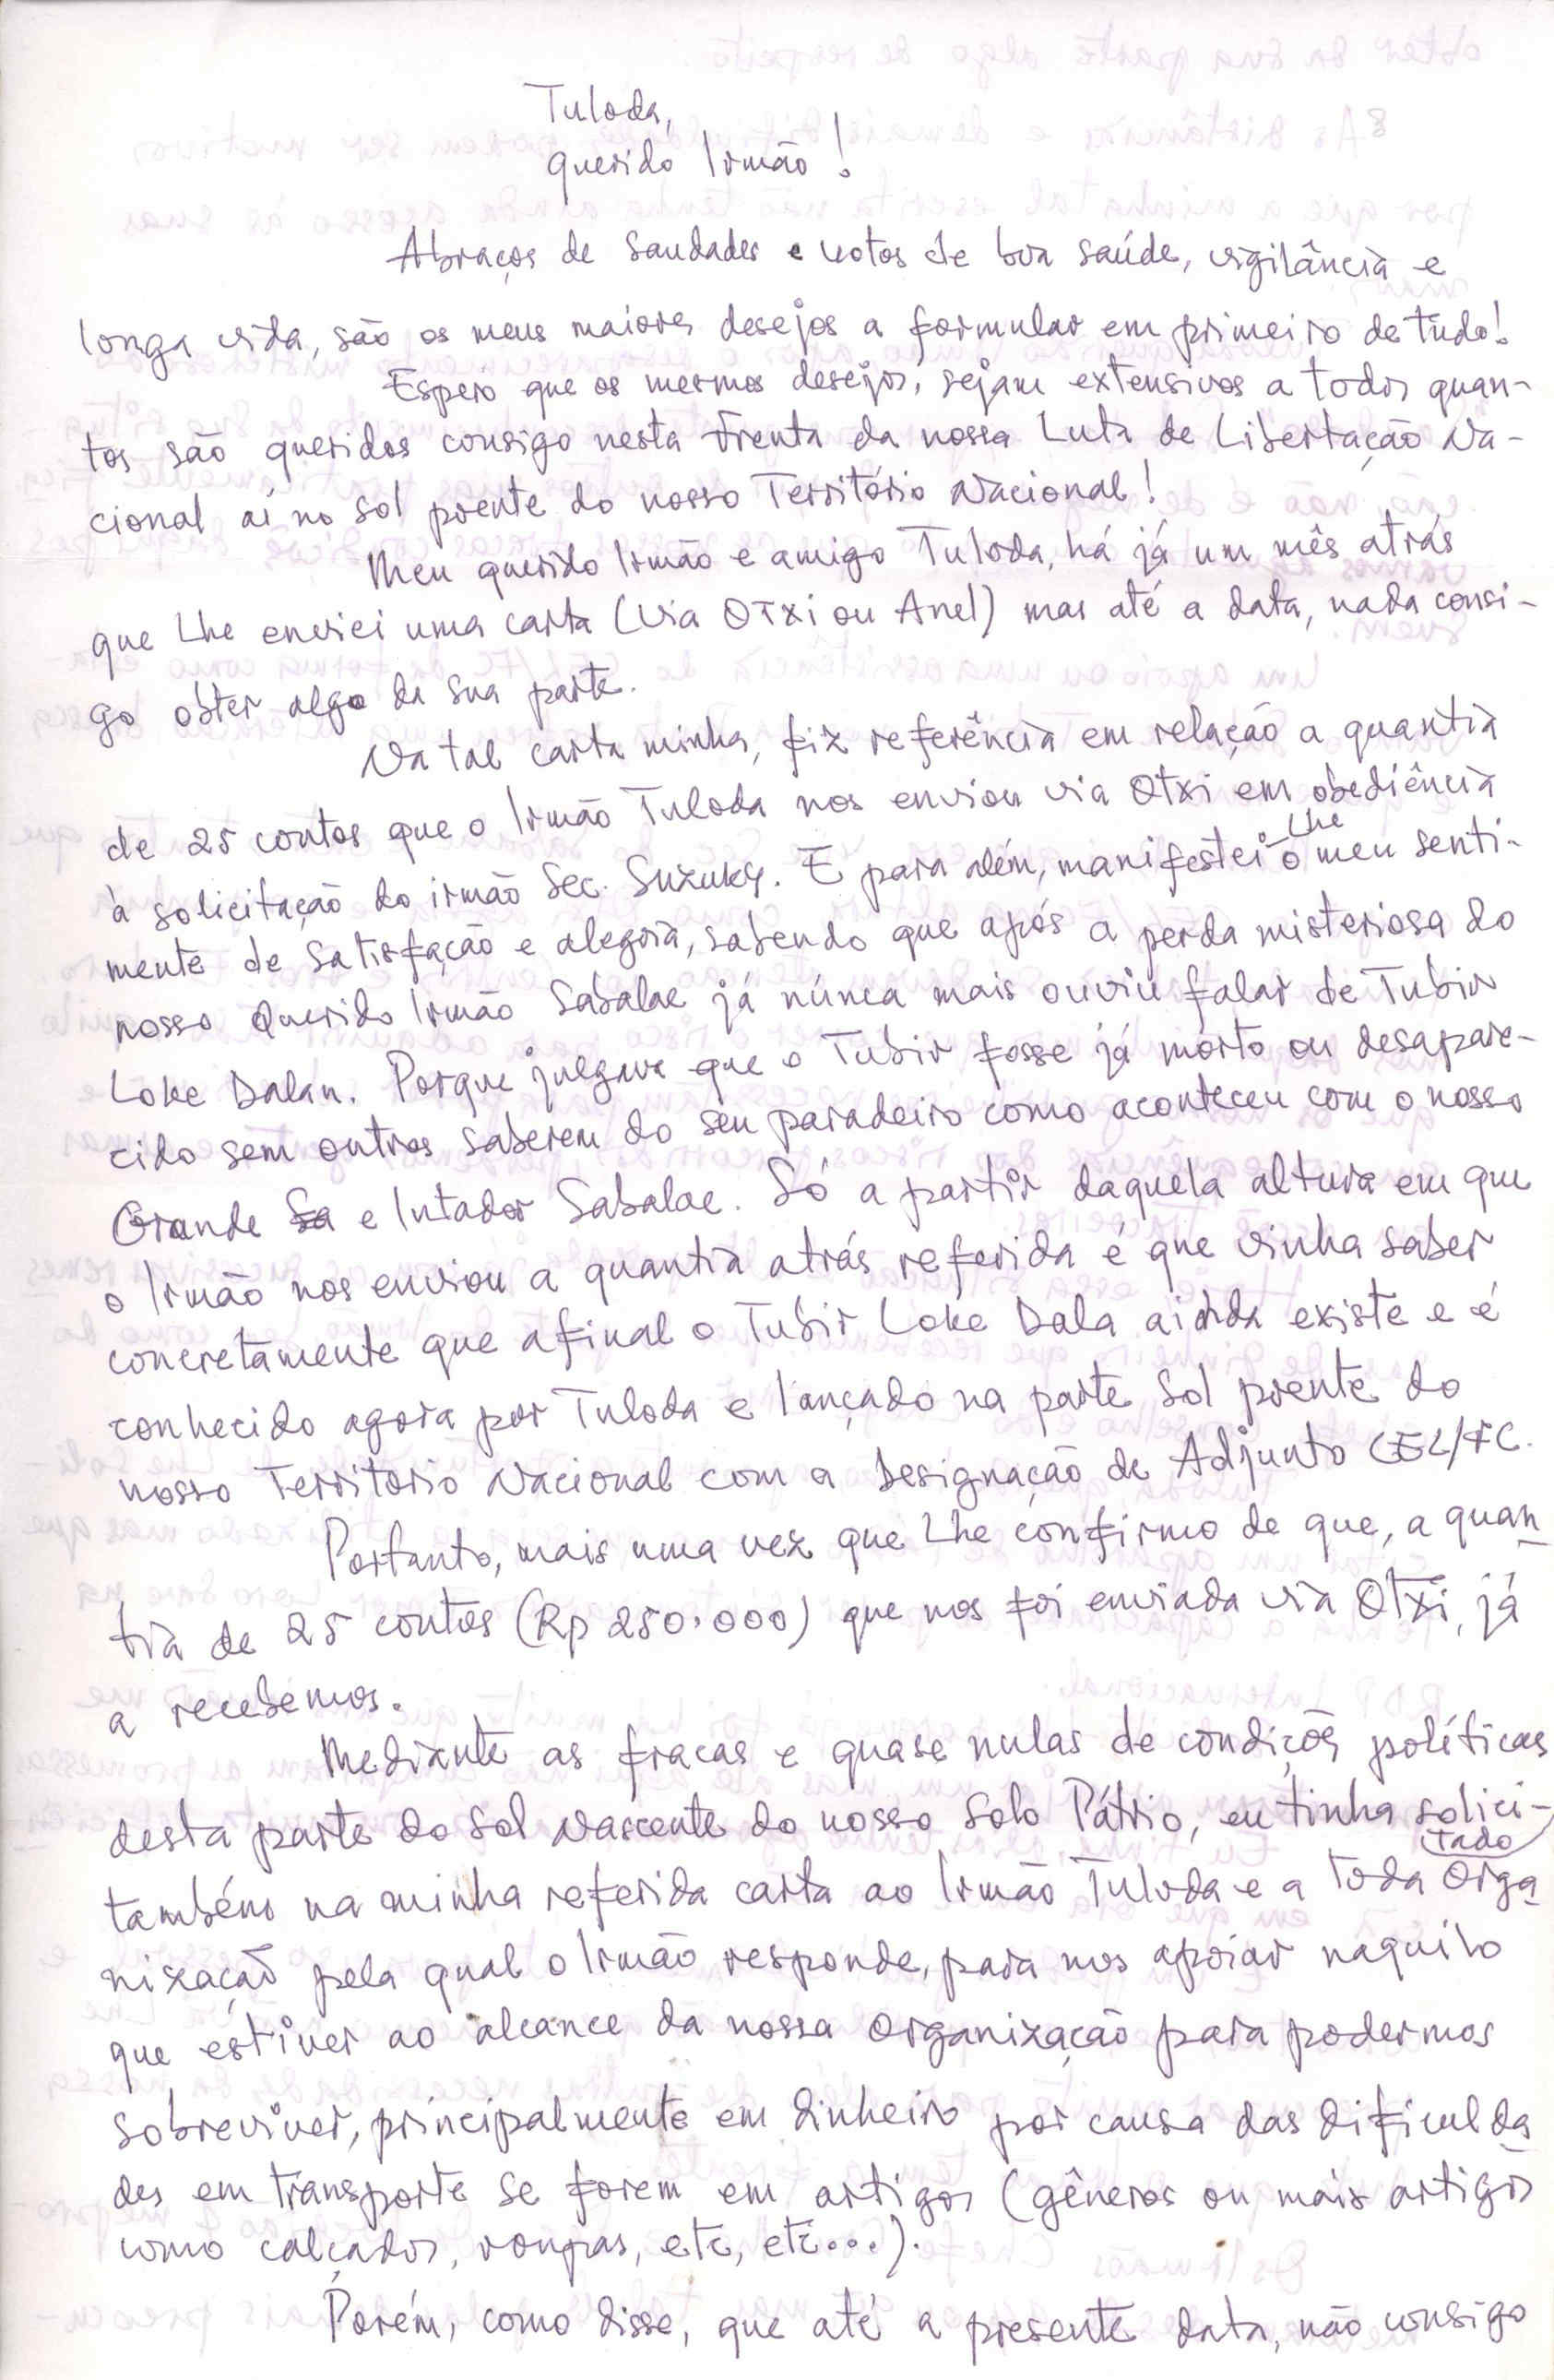 Tuloda,
querido Irmão!
Abraços de Saudades e votos de boa saúde, vigilância e
longa vida, são os meus maiores desejos a formular em primeiro de tudo!
Espero que os mesmos desejos, sejam extensivos a todos quan-
tos são queridos consigo nesta Frenta da nossa Luta de Libertação Na-
cional aí no Sol poente do nosso Território Nacional!
Meu querido Irmão e amigo Tuloda, há já um mês atrás
que Lhe enviei uma carta (Via OTxi ou Anel) mas até a data, nada consi-
go obter algo da sua parte.
Na tal carta minha, fiz referência em relação a quantia
de 25 contos que o Irmão Tuloda nos enviou via OTxi em obediência
à solicitação do irmão Sec. Suzuky. E para além, manifestei-Lhe o meu senti-
mente de Satisfação e alegria, sabendo que após a perda misteriosa do
nosso Querido Irmão Sabalae já núnca mais ouviu falar de Tubir
Loke Dalan. Porque julgava que o Tubir fosse já morto ou desapare-
cido sem outros saberem do seu paradeiro como aconteceu com o nosso
Grande Sa e lutador Sabalae. Só a partir daquela altura em que
o Irmão nos enviou a quantia atrás referida é que vinha saber
concretamente que afinal o Tubir Loke Dala ainda existe e é
conhecido agora por Tuloda e lançado na parte Sol poente do
nosso Território Nacional com a Designação de Adjunto CEL/FC.
Portanto, mais uma vez que Lhe confirmo de que, a quan
tia de 25 contos (Rp 250.000) que nos foi enviada via OTxi, já
a recebemos.
Mediante as fracas e quase nulas de condições políticas
desta parte do Sol Nascente do nosso Solo Pátrio, eu tinha solici-
tado
também na minha referida carta ao Irmão Tuloda e a toda Orga
nização pela qual o Irmão responde, para nos apoiar naquilo
que estiver ao alcance da nossa Organização para podermos
sobreviver, principalmente em dinheiro por causa das dificulda
des em transporte se forem em artigos (gêneros ou mais artigos
como calçados, roupas, etc, etc...).
Porém, como disse, que até a presente data, não consigo